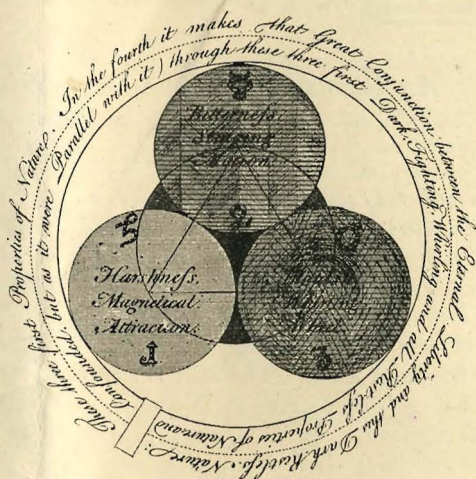 That three first Properties of Nature. In the fourth it makes That Great Conjunction between the Eternal Liberty and this Dark Restleſs Nature:
Confounded, but as it were Parallel with it) through these three first Dark, Fighting, Whirling and all Restleſs Properties of Nature and
Bitterneſs.
Motion.
2
Harshneſs.
Magnetical
Attraction.
1
Wheel
3